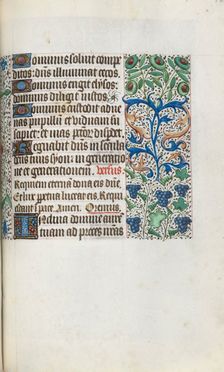 Dominus soluit compe
ditos: dñs illuminat cecos.
Dominus erigit elysos:
dominus diligit iustos.
Dominus custodit adue
nas pupillũ et viduam su
scipiet: et vias pctor disper.
Regnabit dñs in secula
deus tuus syon: in generatione
et generationem. versus.
Requiem eternã dona eis dñe.
Et lux perpetua luceat eis. Requi
escant in pace. Amen. Oremus.
Inclina domine aurem
tuam ad preces nr̃as